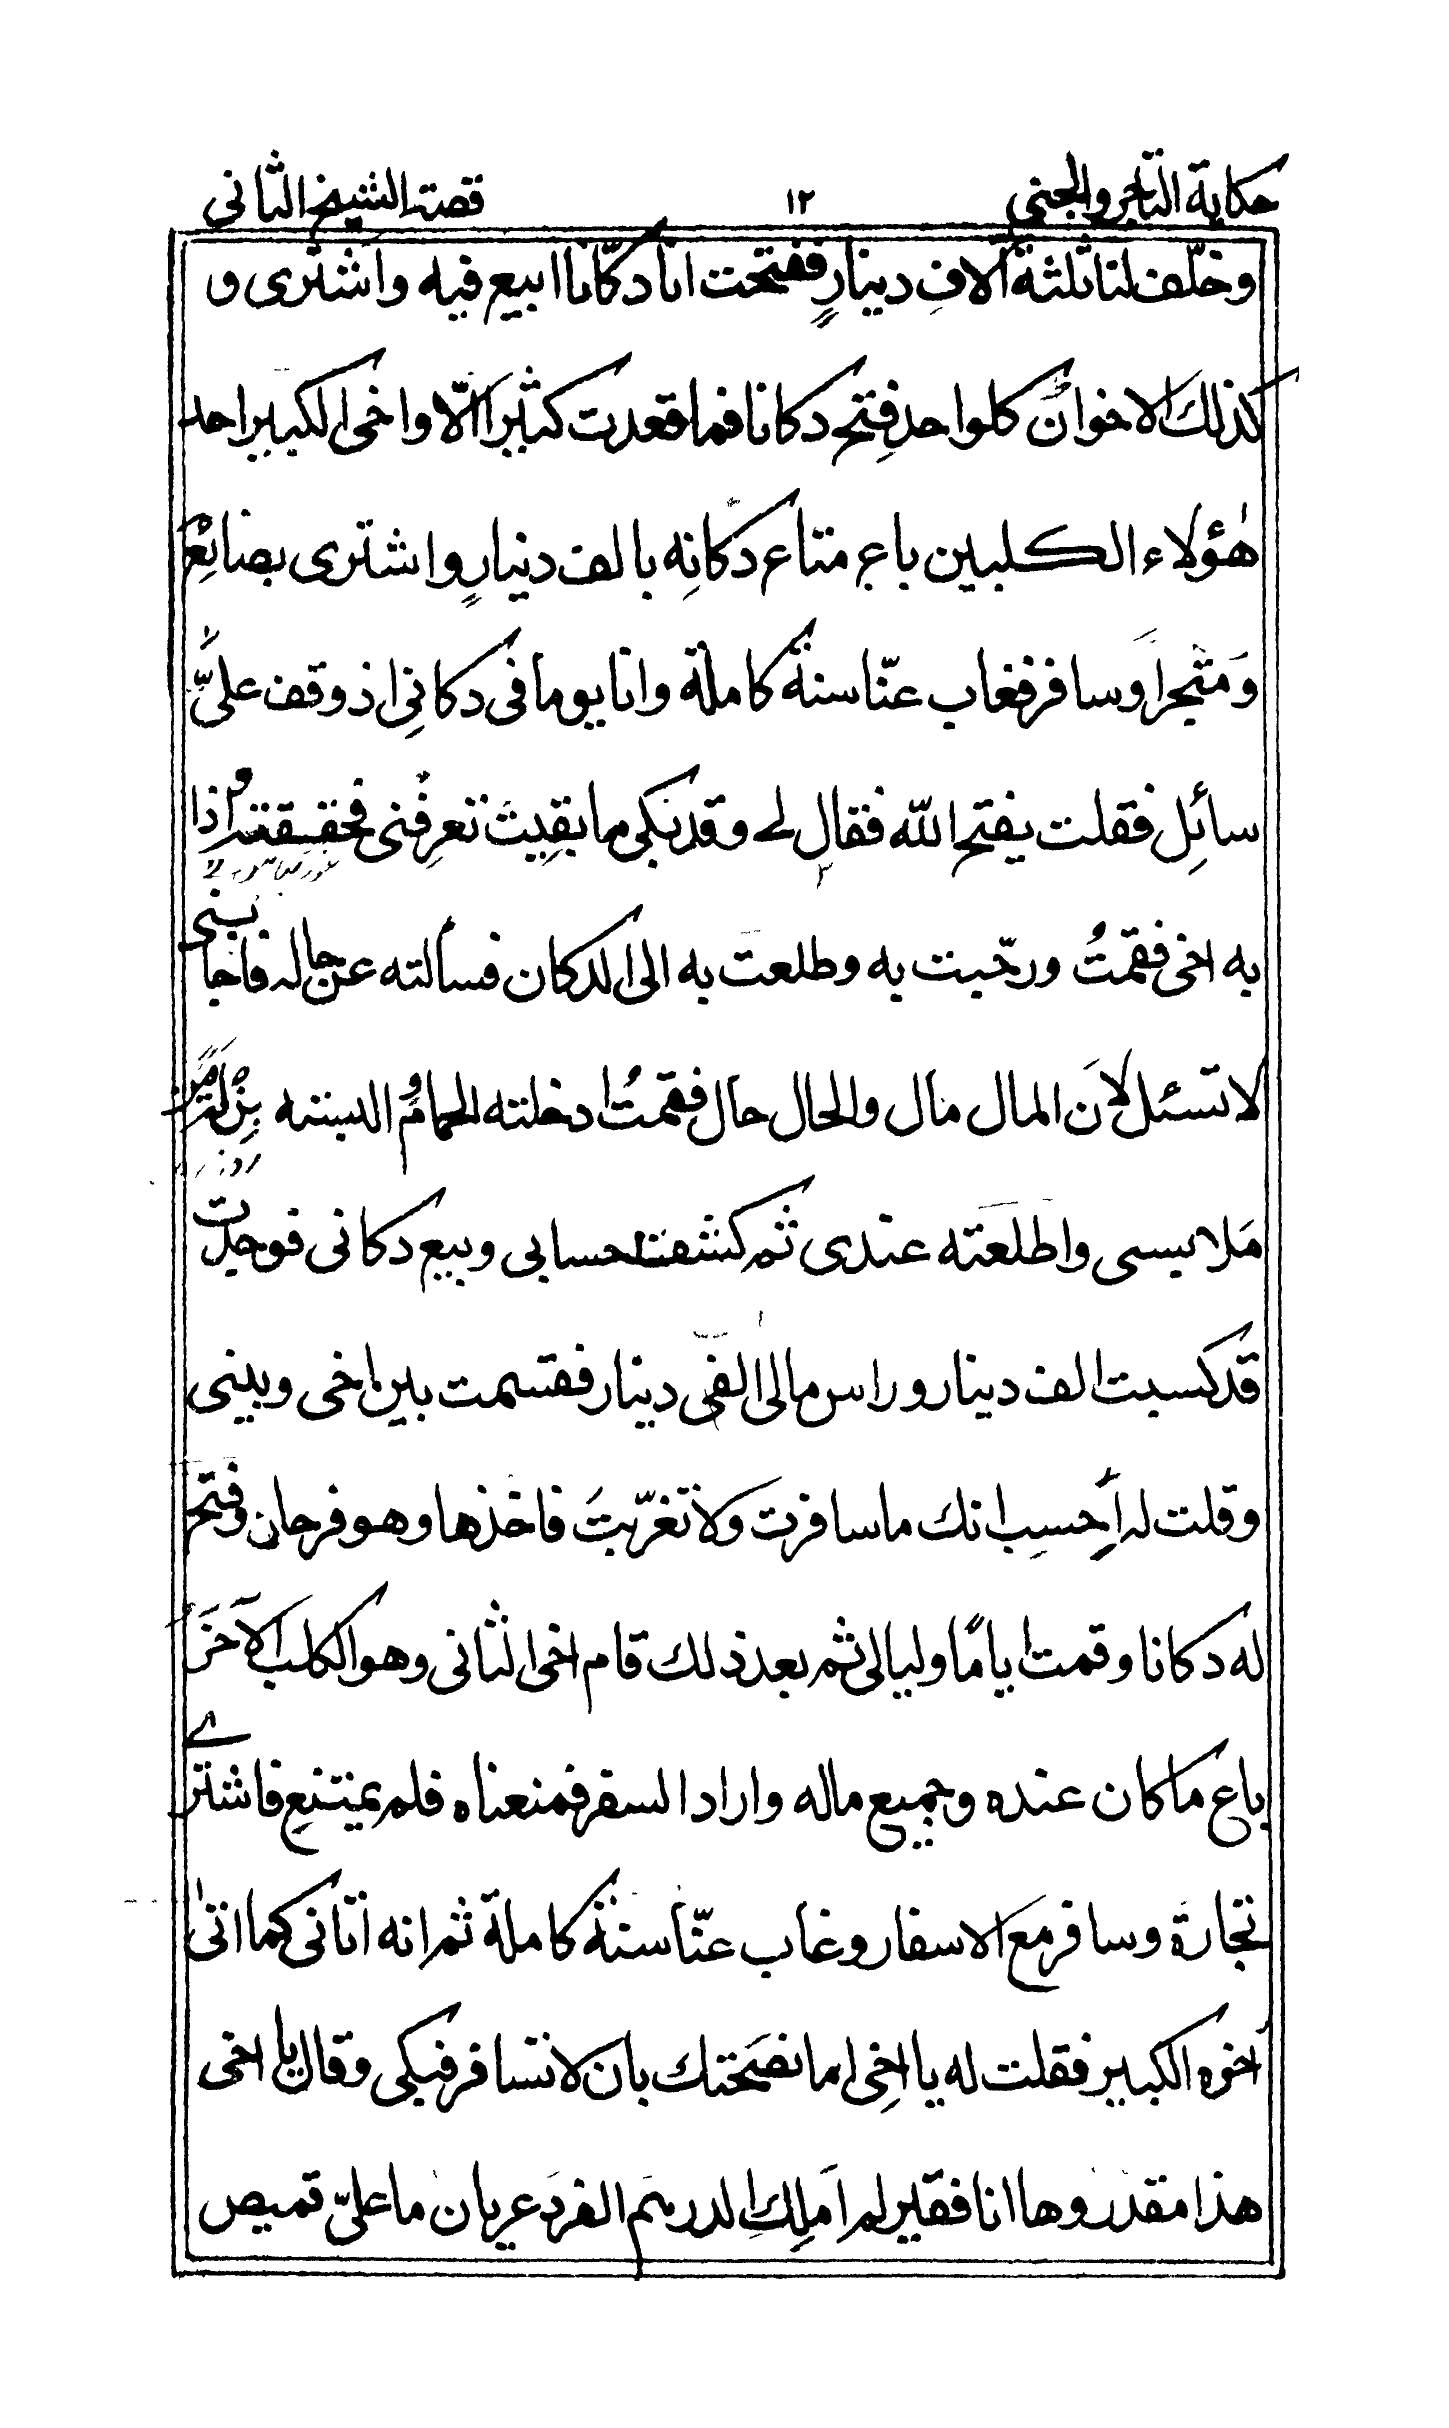 حكاية التاجر والجني ١٢ قصة الشيخ الثاني
وخلّف لنا ثلثة آلافِ دينارٍ ففتحت انا دكّانا ابيع فيه واشترى و
كذلك الاخوان كلواحد فتح دكانا فما قعدت كثيرا الّا واخى الكبير احد
هٰؤلاء الكلبين باع متاع دكانِه بالف دينارٍ واشترى بضائع
وَمتجراً وسافر فغاب عنّا سنةً كاملة وانا يوما فى دكانِى اذ وقف علىَّ
سائِل فقلت يفتح الله فقال لے وقد بكى ما بقِيتَ تعرِفُنى فحققته واذا
به اخى فقمتُ ورحّبت به وطلعت به الى الدكان فسألته عن حاله فاجابنى
لا تسئل لاَن المال مال والحال حال فقمتُ ادخلته الحمام والبسته بِزلة من
مَلابسى واطلعَته عندى ثم كشفت حسابى وبيع دكانى فوجدت
قد كسبت الف دينار وراس مالى الفى دينار فقسمت بين اخى وبينى
وقلت له اَحسِب انك ما سافرت ولا تغرّبتَ فاخذها وهو فرحان وفتح
له دكانا وقمت اياماً وليالى ثم بعد ذلك قام اخى الثانى وهو الكلب الآخَر
باع ما كان عنده وجميع ماله واراد السفر فمنعناه فلم يمتنع فاشترے
تجارة وسافر مع الاسفار وغاب عنّا سنةً كاملة ثم انه اتانى كما اتىٰ
اخوه الكبير فقلت له يا اخِى اما نصَحتك بان لا تسافر فبكى وقال يا اخى
هذا مقدر وها انا فقير لم اَملِكِ الدرهم الفرد عريان ما علىّ قميص